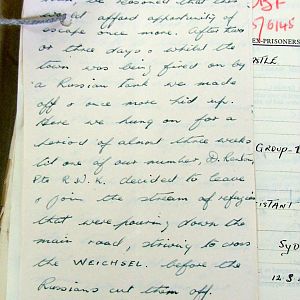 we reasoned that this
might afford opportunity of
escape once more. After two
or three days & whilst the
town was being fired on by
a Russian tank we made
off & once more hid up.
Here we hung on for a
period of almost three weeks
til one of our number, D.
Pte R.W.K. decided to leave
& join the stream of refugees
that were pouring down the
main road, striving to cross
the WEICHSEL before the
Russians cut them off.
EX-PRISONERS
GROUP-
SYD